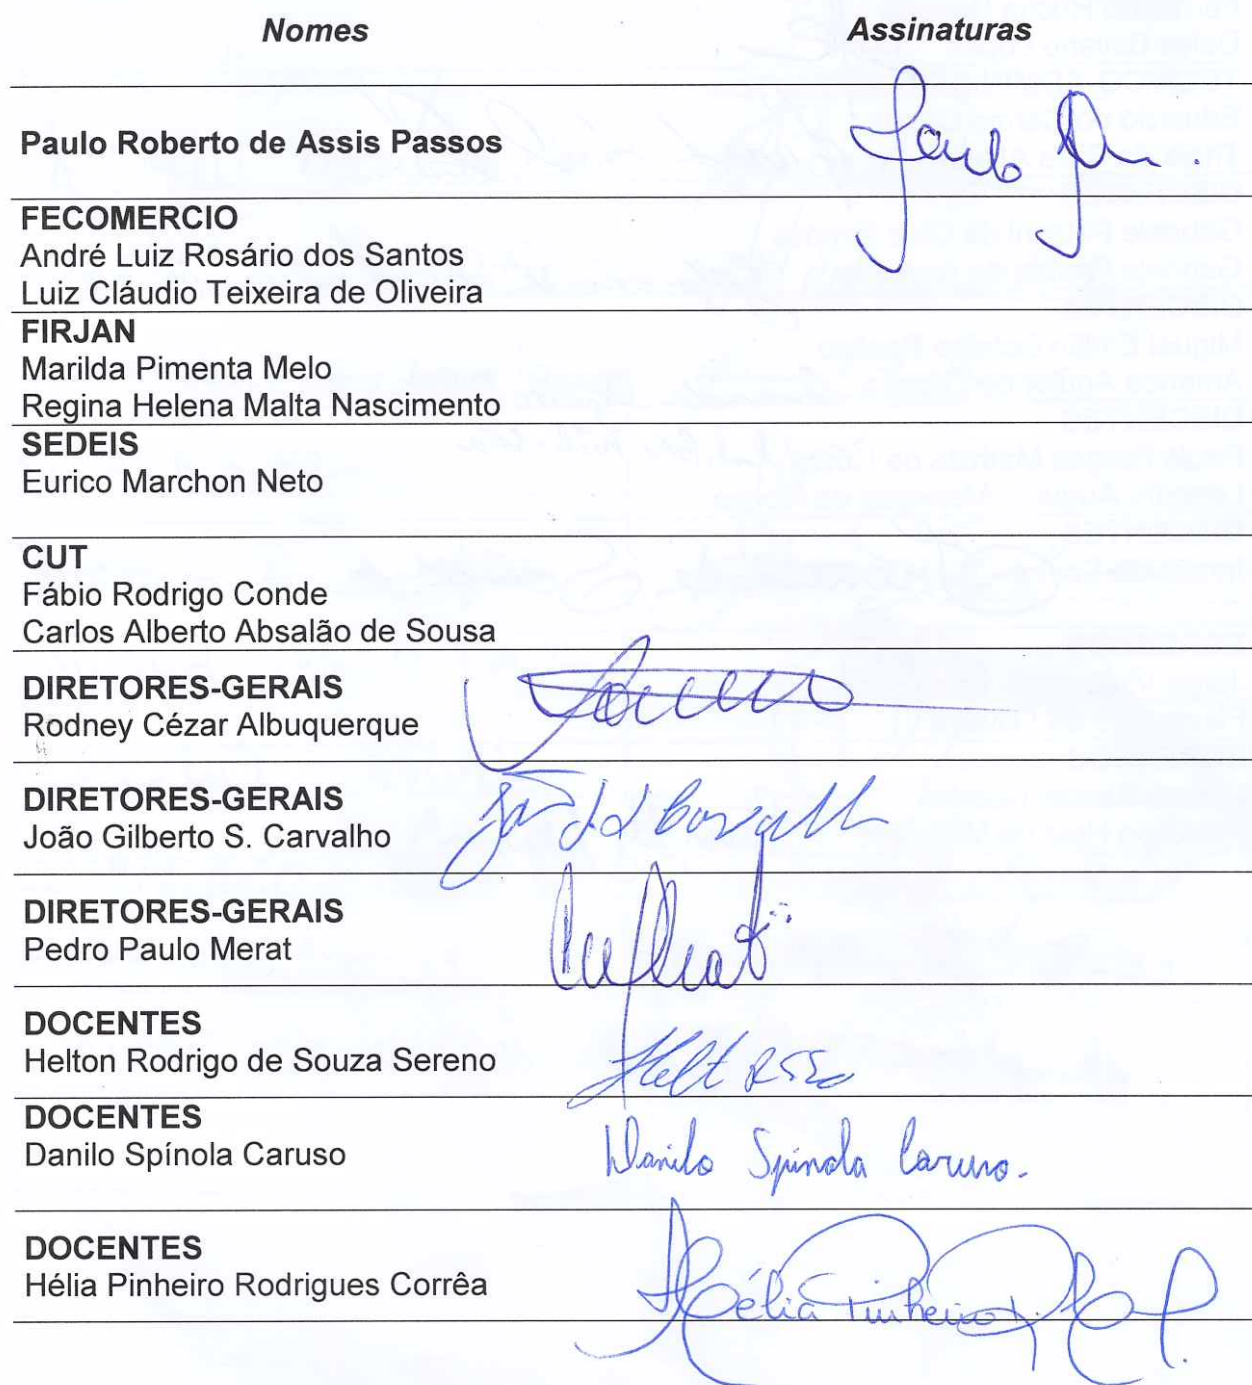 Nomes Assinaturas
Paulo Roberto de Assis Passos
FECOMERCIO
André Luiz Rosário dos Santos
Luiz Cláudio Teixeira de Oliveira
FIRJAN
Marilda Pimenta Melo
Regina Helena Malta Nascimento
SEDEIS
Eurico Marchon Neto
CUT
Fábio Rodrigo Conde
Carlos Alberto Absalão de Sousa
DIRETORES-GERAIS
Rodney Cézar Albuquerque
DIRETORES-GERAIS
João Gilberto S. Carvalho
DIRETORES-GERAIS
Pedro Paulo Merat
DOCENTES
Helton Rodrigo de Souza Sereno
DOCENTES
Danilo Spínola Caruso Danilo Spínola Caruso.
DOCENTES
Hélia Pinheiro Rodrigues Corrêa Hélia Pinheiro